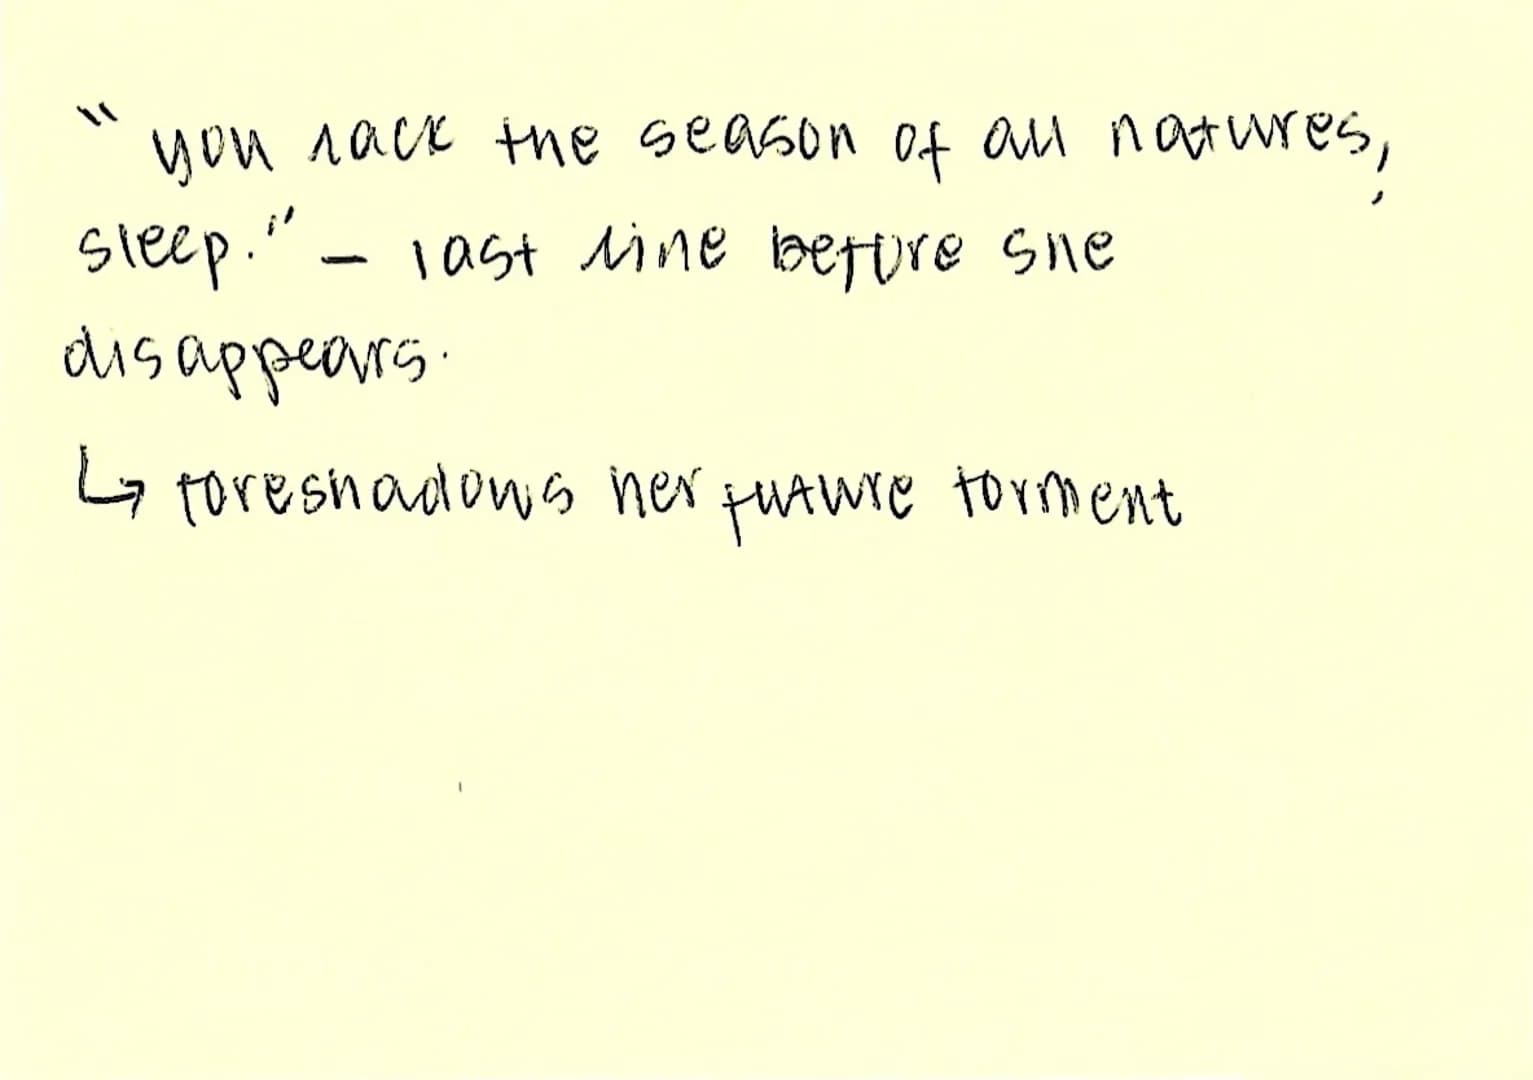 "you lack the season of all natures,
sleep." – last line before she
disappears.
↳ foreshadows her future torment